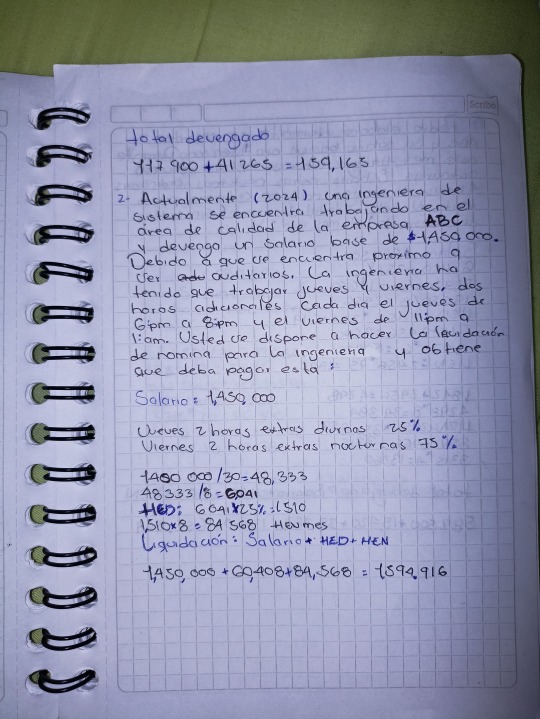 Scribe
total devengado
117 900 + 41 265 = 159,165
2- Actualmente (2024) una ingeniera de
sistema se encuentra trabajando en el
área de calidad de la empresa ABC
y devenga un salario base de $1,450 000.
Debido a que se encuentra proximo a
ser auditarios. La ingeniera ha
tenido que trabajar jueves y viernes, dos
horas adicionales cada dia el jueves de
6:pm a 8:pm y el viernes de 11pm a
1:am. Usted se dispone a hacer la liquidación
de nomina para la ingeniera y obtiene
que deba pagar esta:
Salario = 1,450,000
Jueves 2 horas extras diurnas 25%
Viernes 2 horas extras nocturnas 75%
1450 000/30=48,333
48333/8=6041
HED: 6041x25%:1510
1,510x8=84 568 Hen mes
Liquidación: Salario + HED + HEN
1,450,000 + 60,408 + 84,568 = 1,594.916